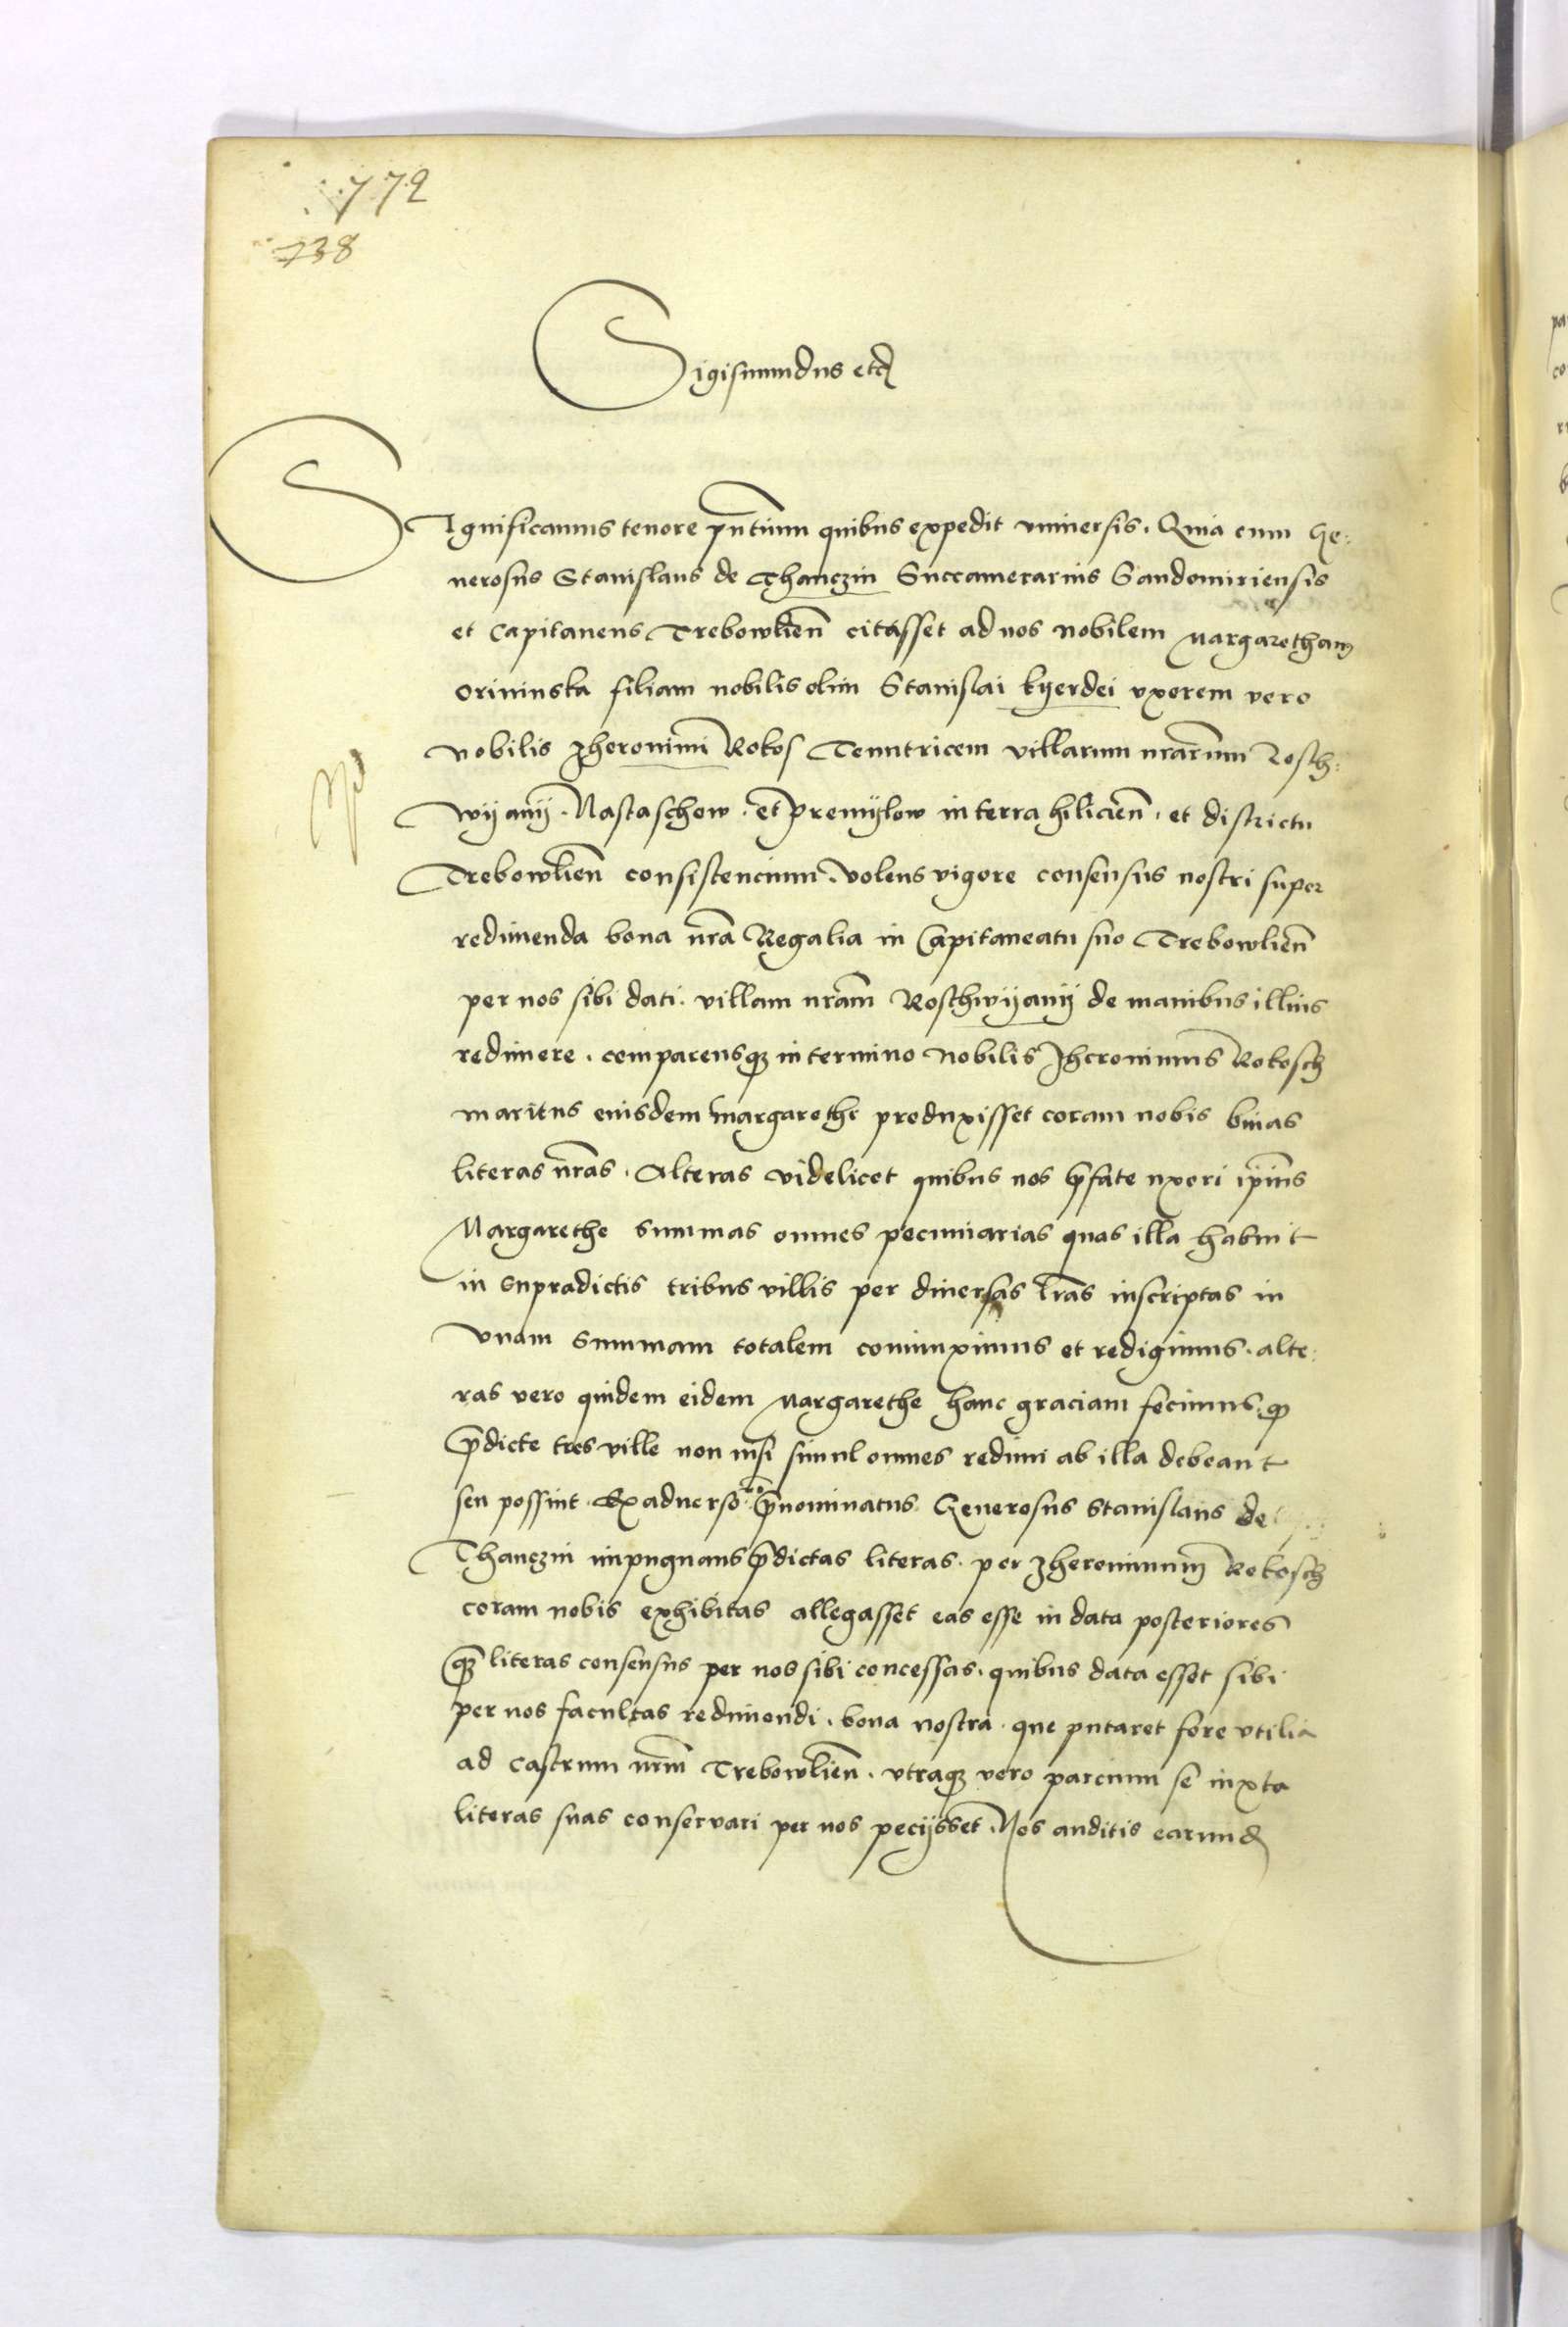 772
738
Sigismundus etc
Significamus tenore pn̄tium quibus expedit vniuersis. Quia cum Ge:
nerosus Stanislaus de Thanczin Succamerarius Sandomiriensis
et Capitaneus Trebowlien̄ citasset ad nos nobilem Margaretham
Orininska filiam nobilis olim Stanislai kyerdei vxorem vero
nobilis Jheronimi Rokos Tenutricem villarum nrārum Rosch:
wyanij. Nastaschow. et premijlow in terra halicien̄. et districtu
Trebowlien̄ consistencium. volens vigore consensus nostri super
redimenda bona nrā Regalia in Capitaneatu suo Trebowlien̄
per nos sibi dati. villam nrām Roschwijanij de manibus illius
redimere. comparensq̨ in termino nobilis Jheronimus Rokosch
maritus eiusdem Margarethe produxisset coram nobis binas
literas nrās. Alteras videlicet quibus nos p̄fate uxori ip̄ius
Margarethe summas omnes pecuniarias quas illa habuit
in supradictis tribus villis per diuersas lr̄as inscriptas in
vnam summam totalem coniunximus et redigimus. alte:
ras vero quidem eidem Margarethe hanc graciam fecimus. q̨
p̄dicte tres ville non nisi simul omnes redimi ab illa debeant
seu possint. Ex aduerso v̊ p̄nominatus Generosus Stanislaus de
Thanczin impugnans p̄dictas literas. per Jheronimum Rokosch
coram nobis exhibitas allegasset eas esse in data posteriores
q̄ literas consensus per nos sibi concessas. quibus data esset sibi
per nos facultas redimendi. bona nostra. que putaret fore vtilia
ad Castrum nrm̄ Trebowlien̄. vtraq̨ vero parcium se iuxta
literas suas conseruari per nos pecijsset. Nos auditis earund